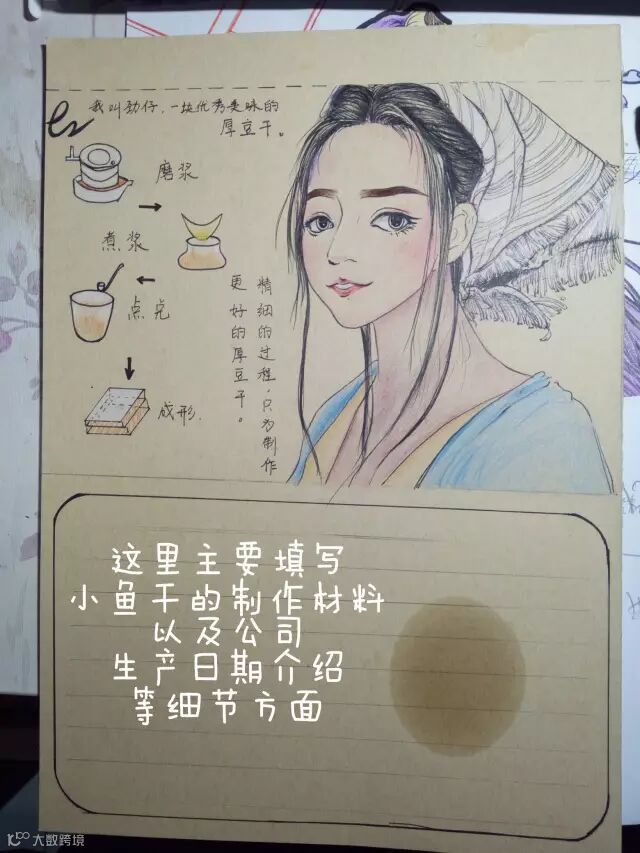 我叫劲仔，一块优秀美味的
厚豆干。
磨浆
煮浆
点兑
成形.
精细的过程，只为制作
更好的厚豆干。
这里主要填写
小鱼干的制作材料
以及公司
生产日期介绍
等细节方面
大数跨境